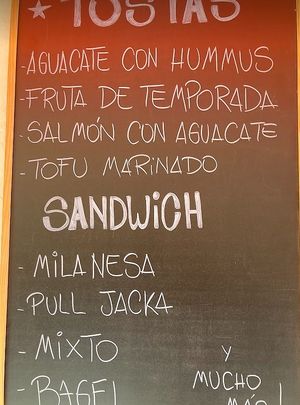 ★ TOSTAS
- AGUACATE CON HUMMUS
- FRUTA DE TEMPORADA
- SALMÓN CON AGUACATE
- TOFU MARINADO
SANDWICH
- MILANESA
- PULL JACKA
- MIXTO
- BAGEL
Y
MUCHO
MÁS!